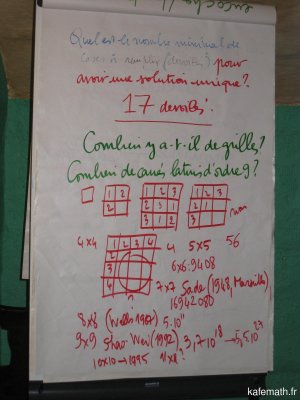 Quel est le nombre minimal de
cases à remplir (dévoilés) pour
avoir une solution unique?
17 dévoilés.
Combien y a-t-il de grilles?
Combien de carrés latins d'ordre 9?
1 2 1 2 3 1 2 3
2 2 3 1 2 1
3 1 2 3 non
4x4 1 2 3 4 4 5x5 56
2
3
4
6x6 9408
7x7 Sade (1948, Marseille)
16942080
8x8 (Wells 1967) 5.10¹¹
9x9 Shao-Wei (1992) 3,7 10¹⁸ → 5,5.10²⁷
10x10 → 1995 11x11?
kafemath.fr